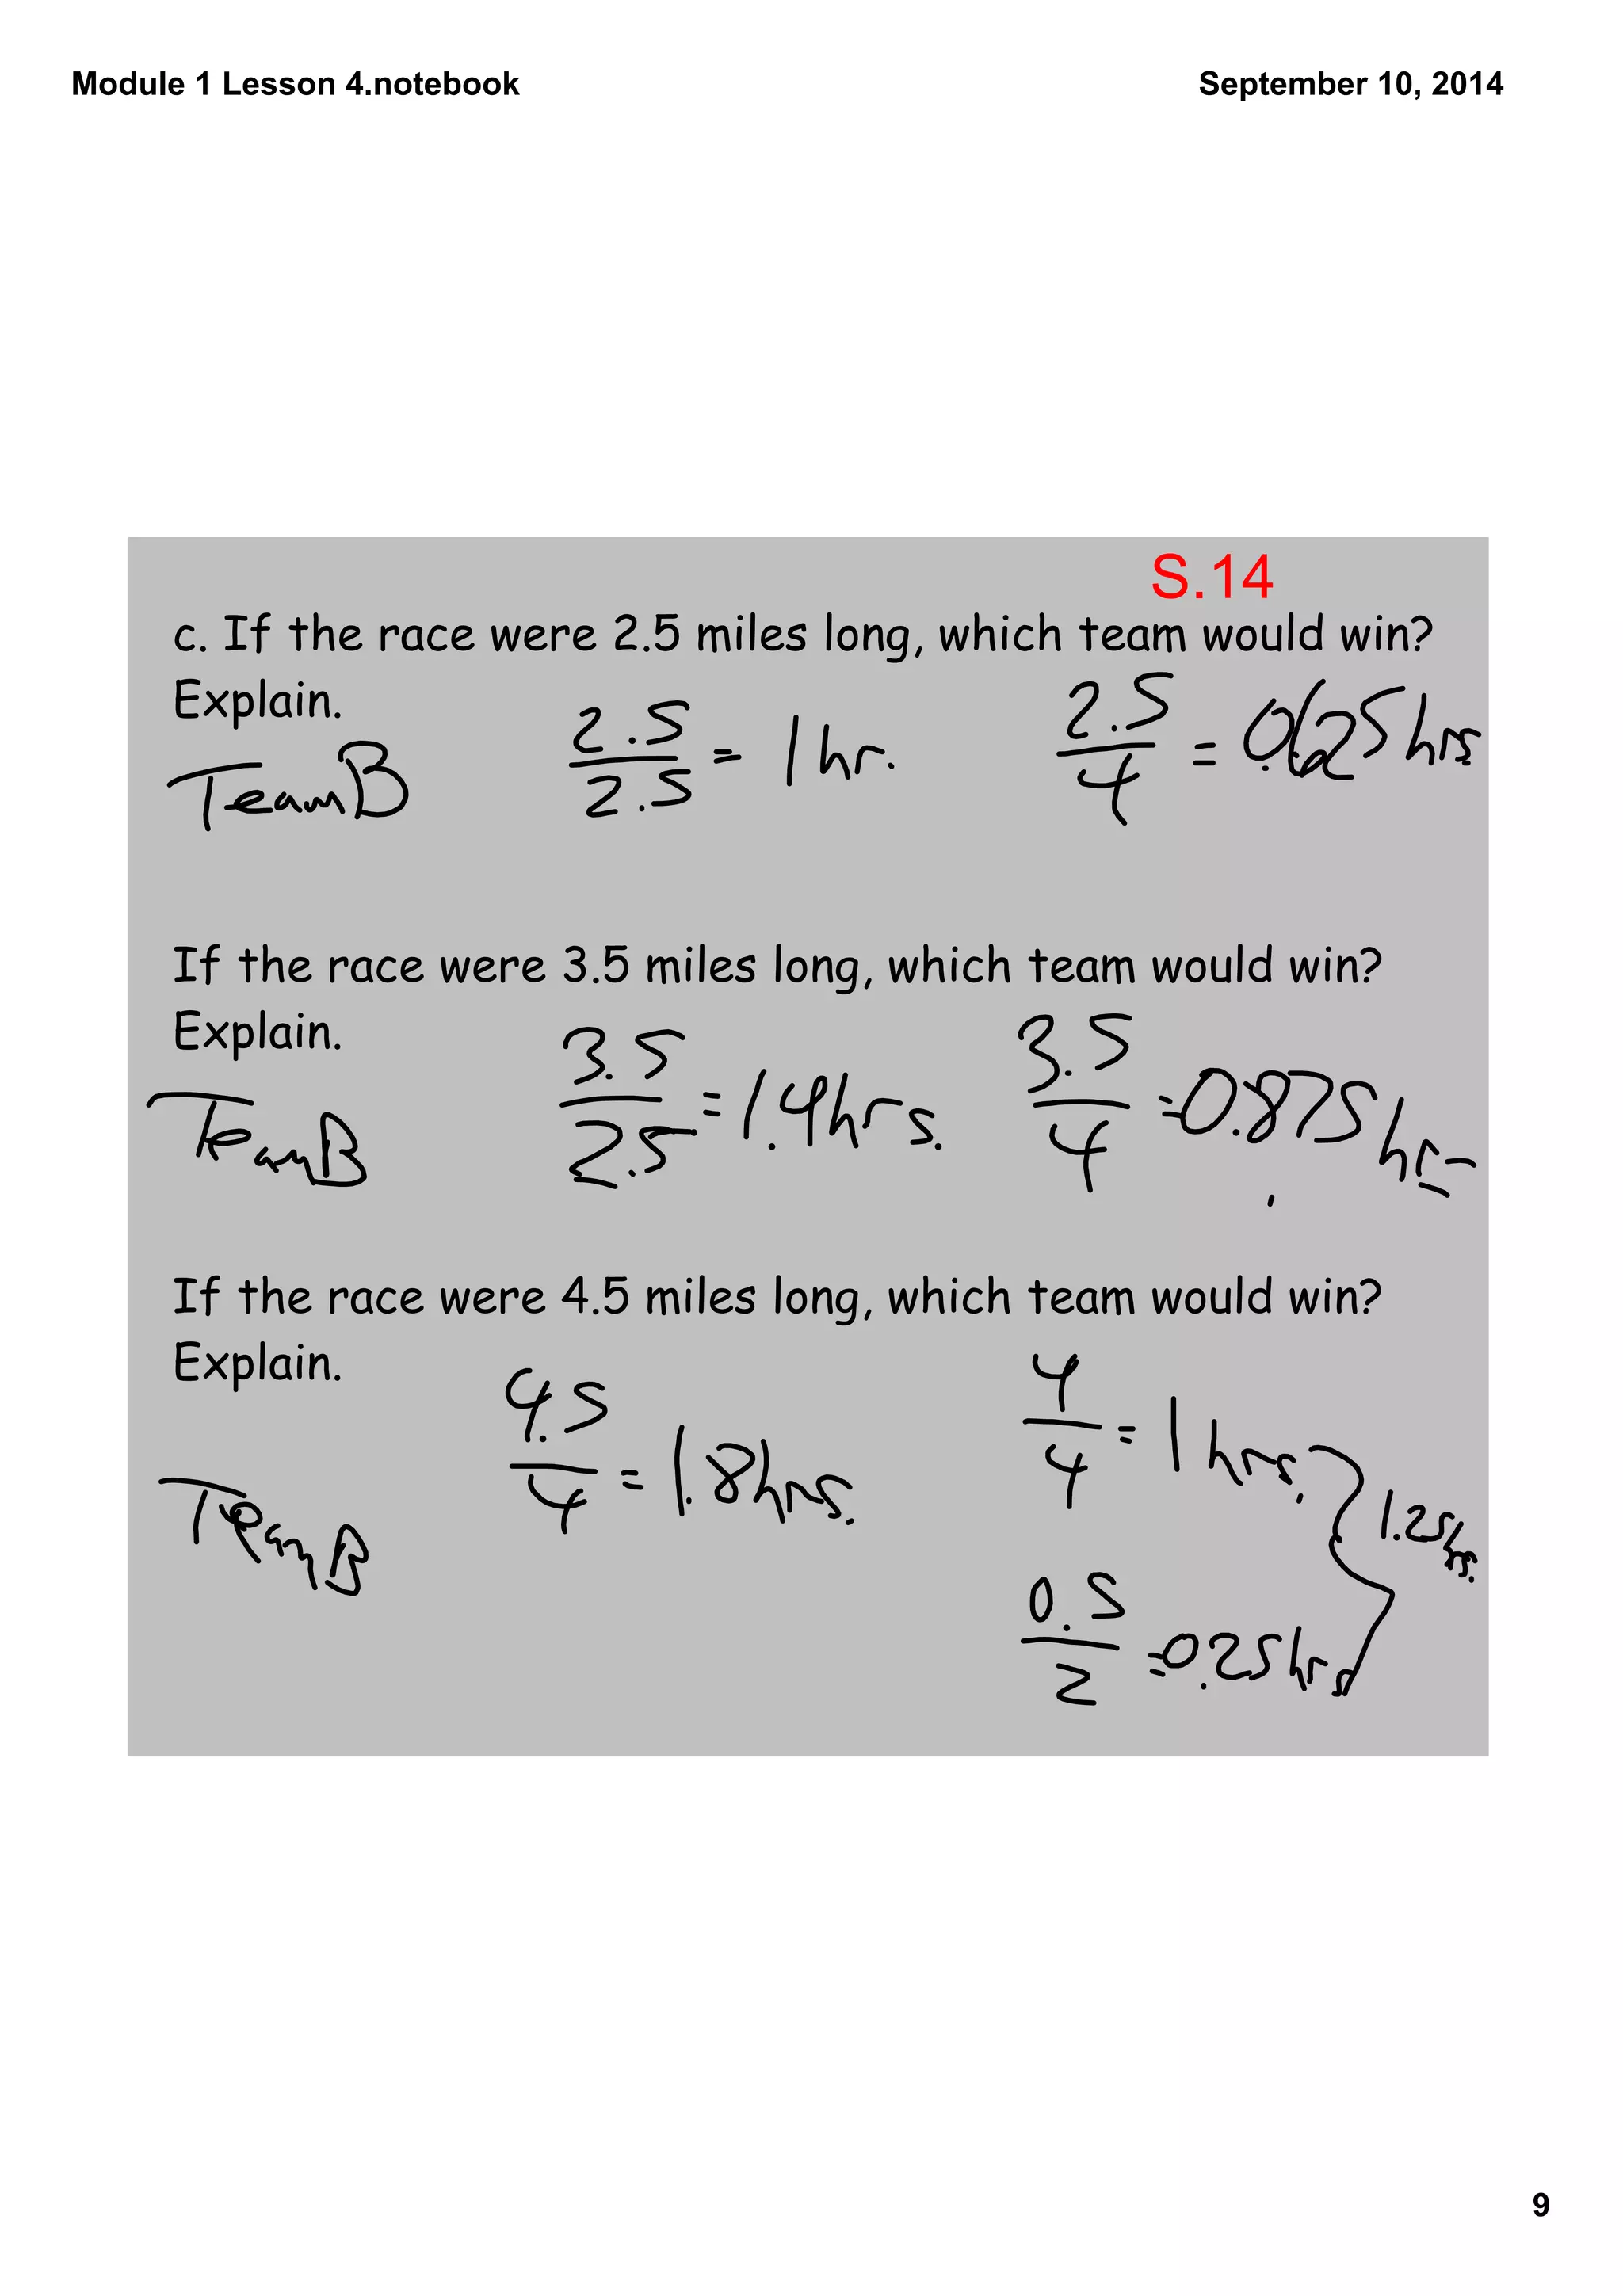 Module 1 Lesson 4.notebook
September 10, 2014
S.14
c. If the race were 2.5 miles long, which team would win?
Explain.
2.5/2.5 = 1 hr.
2.5/4 = 0.625 hrs
Team B
If the race were 3.5 miles long, which team would win?
Explain.
3.5/2.5 = 1.4 hrs.
3.5/4 = 0.875 hrs
Team B
If the race were 4.5 miles long, which team would win?
Explain.
4.5/4 = 1.8 hrs.
4/4 = 1 hrs.
1.25 hr.
Team B
0.5/2 = 0.25 hrs
9